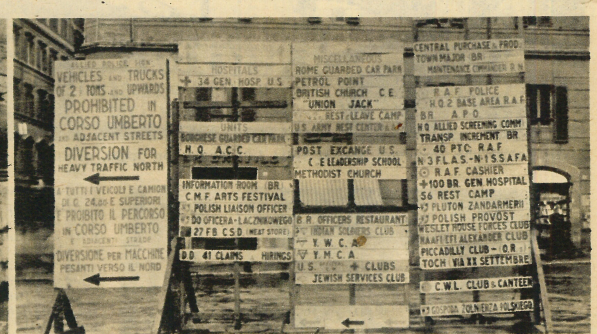 ALLIED POLICE SIGN
VEHICLES AND TRUCKS
OF 2½ TONS AND UPWARDS
PROHIBITED IN
CORSO UMBERTO
AND ADJACENT STREETS
DIVERSION FOR
HEAVY TRAFFIC NORTH
A TUTTI I VEICOLI E CAMION
E SUPERIORI
E PROIBITO IL PERCORSO
IN CORSO UMBERTO
E ADIACENTI STRADE
DIVERSIONE PER MACCHINE
PESANTI VERSO IL NORD
HOSPITALS
+ 34 GEN. HOSP. U.S.
UNITS
BORGHESE GUARDED CAR PARK
H.Q. A.C.C.
INFORMATION ROOM (BR)
C.M.F. ARTS FESTIVAL
POLISH LIAISON OFFICER
DOD OFICERA-LACZNIKOWEGO
27 FB CSD (MEAT STORE)
D D 41 CLAIMS & HIRINGS
MISCELLANEOUS
ROME GUARDED CAR PARK
PETROL POINT
BRITISH CHURCH C E
"UNION JACK"
REST & LEAVE CAMP
U.S. ARMY REST CENTER
POST EXCANGE U.S.
C.E LEADERSHIP SCHOOL
METHODIST CHURCH
B.R. OFFICERS RESTAURANT
INDIAN SOLDIERS CLUB
Y.W.C.A
Y.M.C.A
U.S. + CLUBS
JEWISH SERVICES CLUB
CENTRAL PURCHASE & PROD:
TOWN MAJOR BR
MAINTENANCE COMMANDER R.N
R.A.F. POLICE
H.Q. 2 BASE AREA R.A.F
BR. A P O
H.Q ALLIED SCREENING COMM
TRANSP INCREMENT BR
40 PTC. R.A.F
N 3 FLAS.-N-1 S S.A.F.A
R.A.F. CASHIER
+ 100 BR. GEN. HOSPITAL
56 REST CAMP
PLUTON ZANDARMERII
POLISH PROVOST
WESLEY HOUSE FORCES CLUB
NAAFI EFI ALEXANDER CLUB
PICCADILLY CLUB - (O.R.)
TOCH VIA XX SETTEMBRE
C.W.L. CLUB & CANTEEN
GOSPODA ZOLNIERZA POLSKIEGO